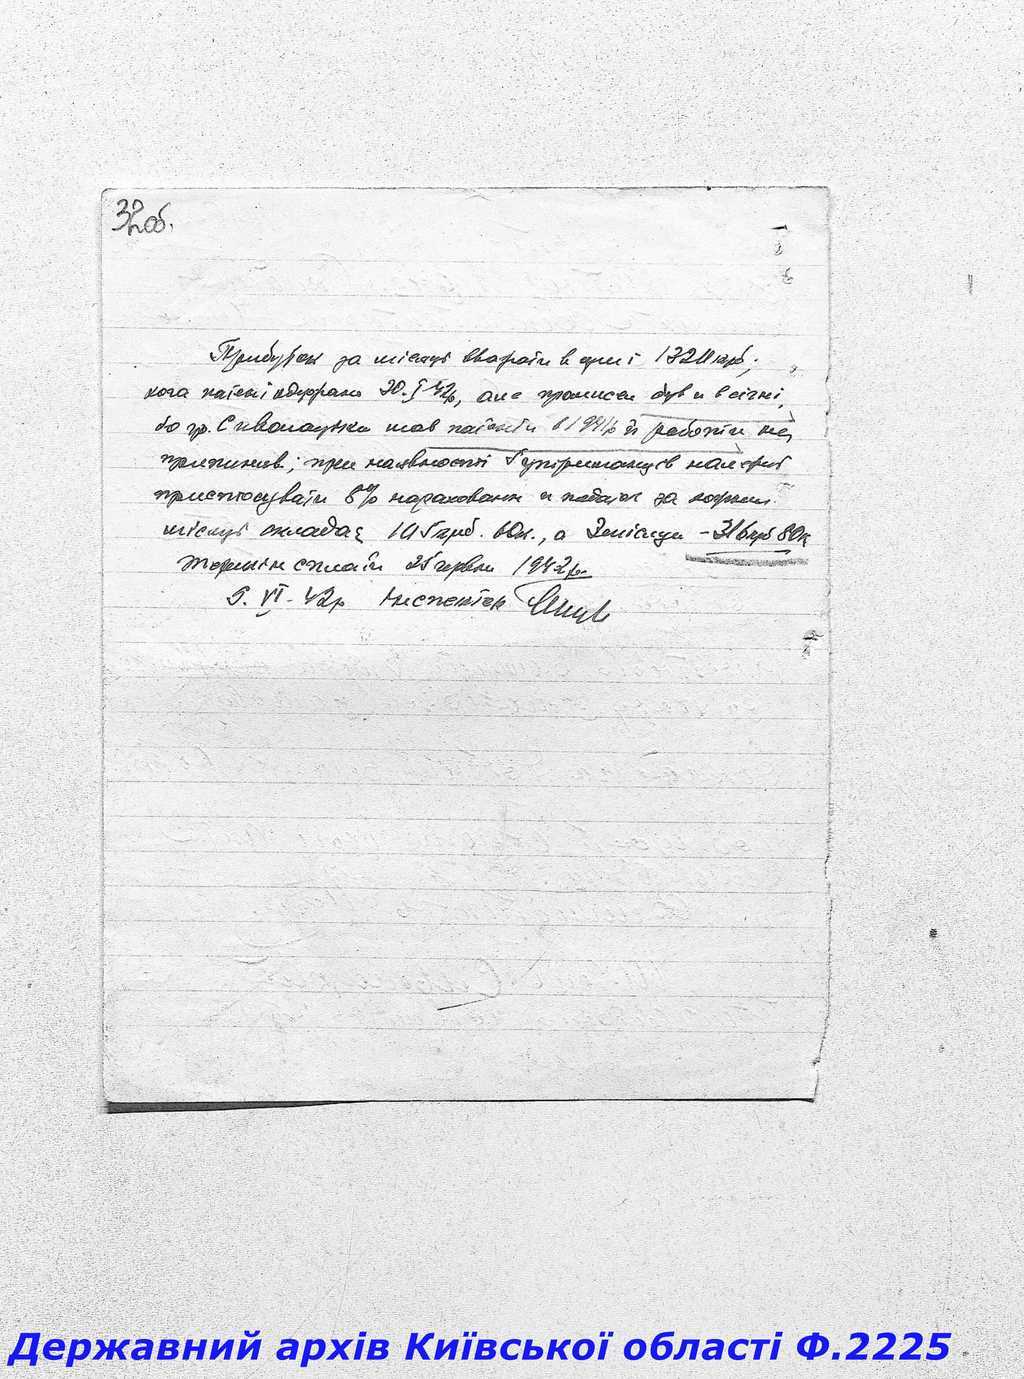 32об.
Прибуток за місяць вважати в сумі 1320 крб.,
хоча патент одержано 20.I 42р, але промисел був и в січні,
бо гр. Сиволапенко мав патент в 1941р й роботи не
припинив; при наявності 5 утриманців належить
пристосувати 8% нарахування и податок за кожний
місяць складає 105 крб. 60к., а 3 місяци - 316крб 80к
Термін сплати 25 червня 1942р.
5. VI - 42р Инспектор
Державний архів Київської області Ф.2225